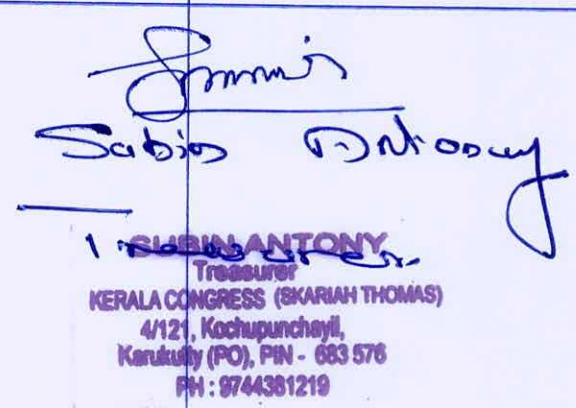 Sabin Antony
Treasurer
SUBIN ANTONY
Treasurer
KERALA CONGRESS (SKARIAH THOMAS)
4/121, Kochupunchayil,
Karukutty (PO), PIN - 683 576
PH : 9744381219